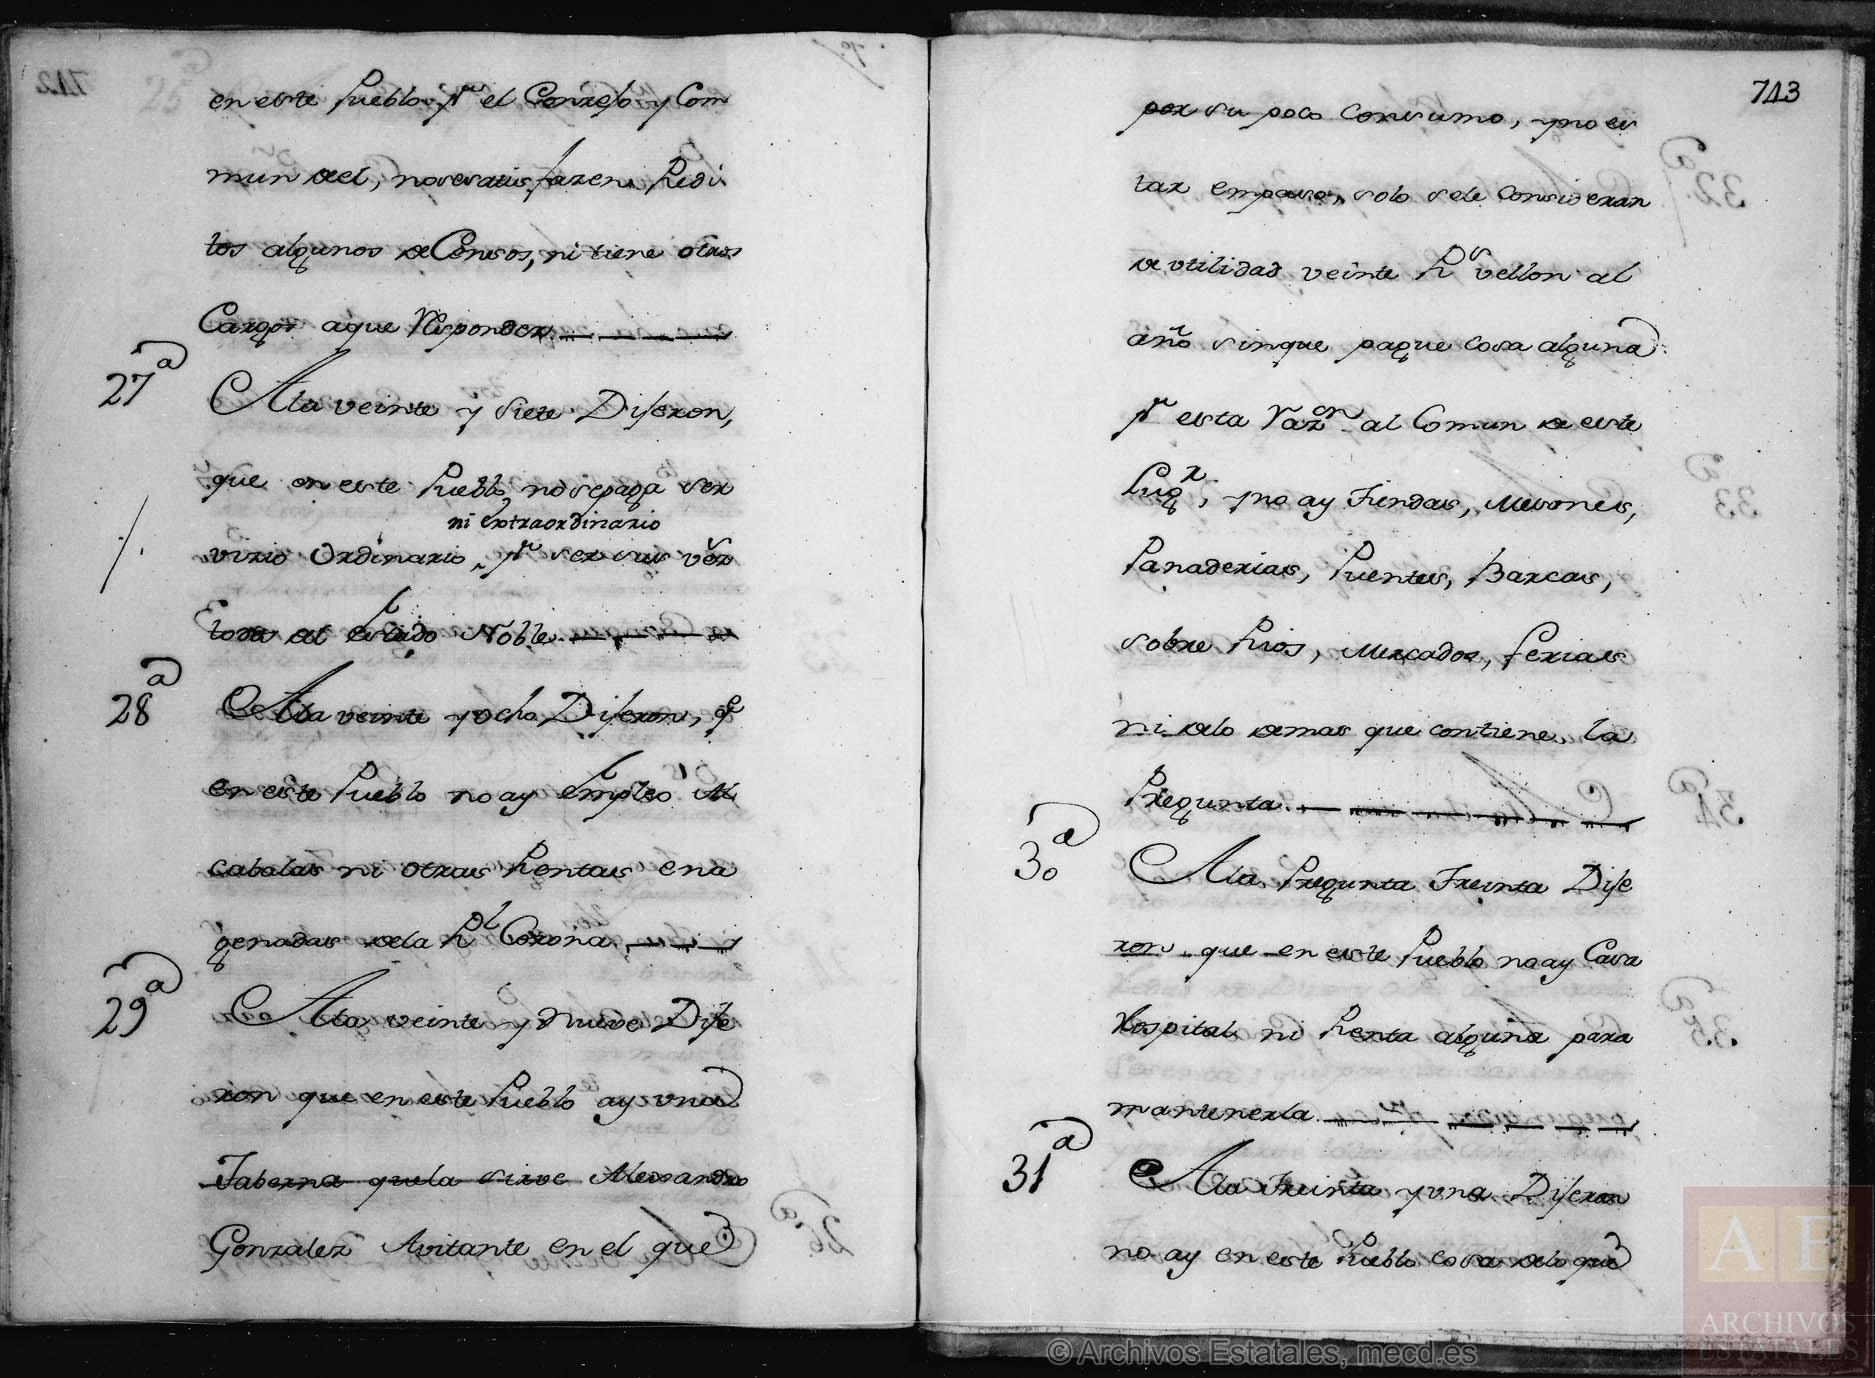 en este Pueblo pr el Conzejo y Com
mun del, no se satisfazen Redi
tos algunos de Censos, ni tiene otros
Cargos a que Responder
27a
A la veinte y siete Dijeron,
que en este Pueblo no se paga ser
ni extraordinario
vizio Ordinario, pr ser sus
todos del Estado Noble
28a
A la veinte y ocho Dijeron, qe
en este Pueblo no ay Empleos Al
cabalas ni otras Rentas ena
genadas de la Rl Corona
29a
A la veinte y Nueve Dije
ron que en este Pueblo ay una
Taberna que la sirve Alexandro
Gonzalez Avitante en el que
743
por su poco Consumo, y no es
tar em paso, solo se le Consideran
de utilidad veinte Rs vellon al
año sin que pague cosa alguna
pr esta Razon al Comun de este
Lugr, y no ay Tiendas, Mesones,
Panaderias, Puentes, Barcas,
sobre Rios, Mercados, ferias
ni de lo demas que contiene la
Pregunta
30a
A la Pregunta Treinta Dije
ron que en este Pueblo no ay Casa
Hospital ni Renta alguna para
mantenerla
31a
A la Treinta y una Dijeron
no ay en este Pueblo cosa de lo que
AE
ARCHIVOS
ESTATALES
© Archivos Estatales, mecd.es